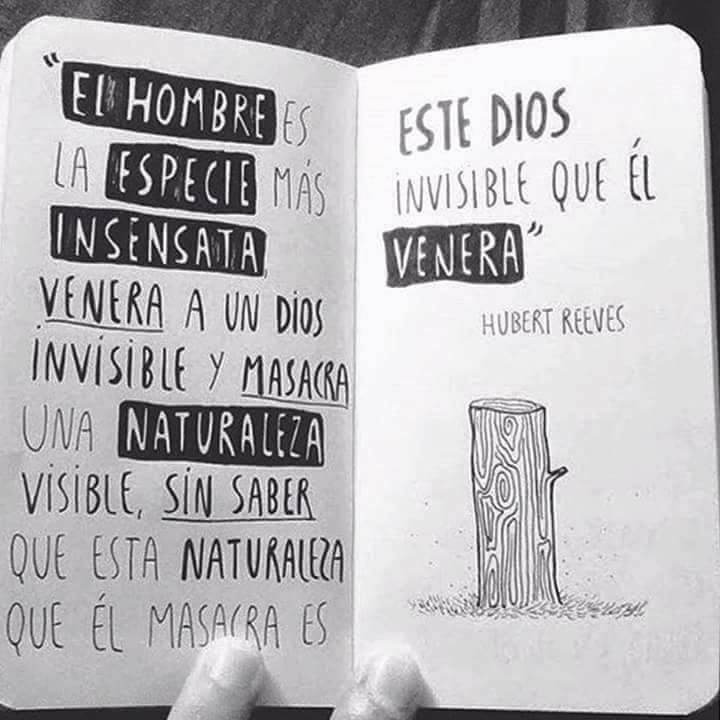 "EL HOMBRE ES
LA ESPECIE MÁS
INSENSATA,
VENERA A UN DIOS
INVISIBLE Y MASACRA
UNA NATURALEZA
VISIBLE, SIN SABER
QUE ESTA NATURALEZA
QUE ÉL MASACRA ES
ESTE DIOS
INVISIBLE QUE ÉL
VENERA"
HUBERT REEVES